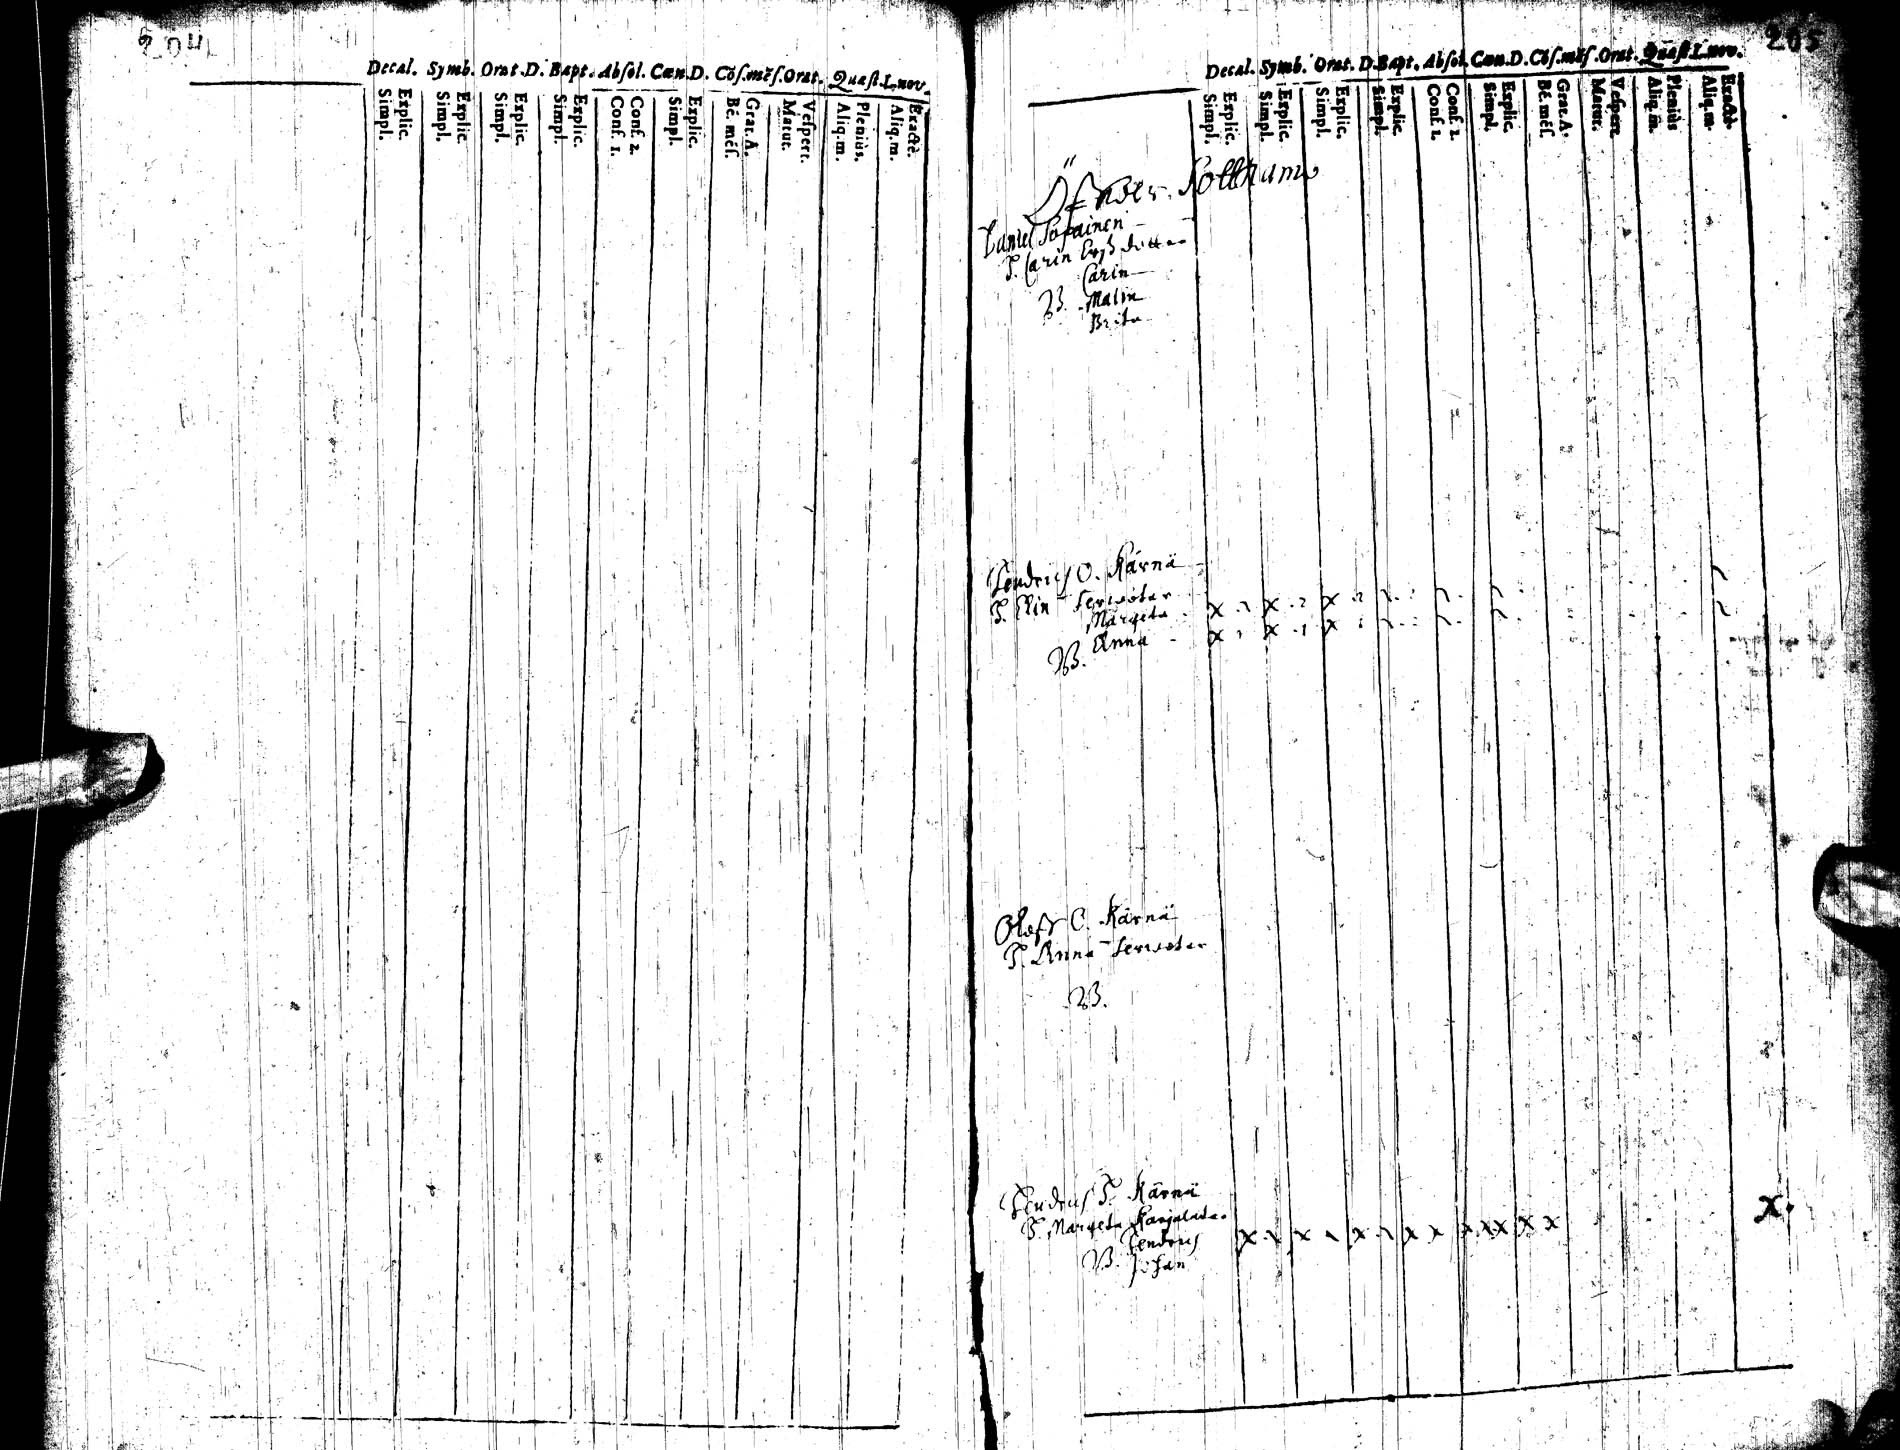 204
Decal. Symb. Orat. D. Bapt. Absol. Cœn. D. Cōſ. mēſ. Orat. Quæſt. L. nov.
Simpl. Explic. Simpl. Explic. Simpl. Explic. Simpl. Explic. Conf. 1. Conf. 2. Simpl. Explic. Bē. mēſ. Grat. A. Matut. Veſpert. Aliq. m. Pleniùs. Aliq. m. Exactè.
205
Decal. Symb. Orat. D. Bapt. Absol. Cœn. D. Cōſ. mēſ. Orat. Quæſt. L. nov.
Simpl. Explic. Simpl. Explic. Simpl. Explic. Simpl. Explic. Conf. 1. Conf. 2. Simpl. Explic. Bē. mēſ. Grat. A. Matut. Veſpert. Aliq. m. Pleniùs Aliq. m. Exactè.
Daniel
H. Carin Erichs dotter
Carin
B. Malin
Brita
Hendrich O. Kärnä
H. Elin
Margeta x x x
B. Anna x x x
Oloff O. Kärnä
H. Anna
B.
Hendrich H. Kärnä
H. Margeta Karjalatar
Hendrich x x x x x x x x x x
B. Johan
x.